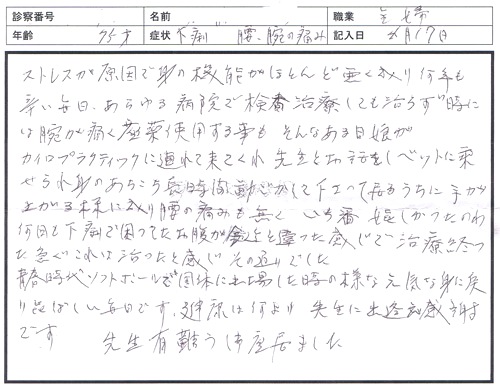 診察番号 名前 職業 主婦
年齢 75才 症状 下痢 腰、腕の痛み 記入日 月17日
ストレスが原因で身の機能がほとんど悪くなり何年も
辛い毎日、あらゆる病院で検査治療しても治らず時に
は腕が痛く座薬使用する事も そんなある日娘が
カイロプラクティックに連れて来てくれ 先生とお話をしベットに乗
せられ身のあちこち長時間動かして下さって居るうちに手が
上がる様になり腰の痛みも無く いち番 嬉しかったのわ
何日も下痢で困ってたお腹が 違った感じで治療終つ
た急ぐこれは治ったと感じ その通りでした
青春時代ソフトボールで国体に出場した時の様な元気な身に戻
り 毎日です、健康は何より 先生に出逢ゑ感謝
です 先生有難う御座居ました